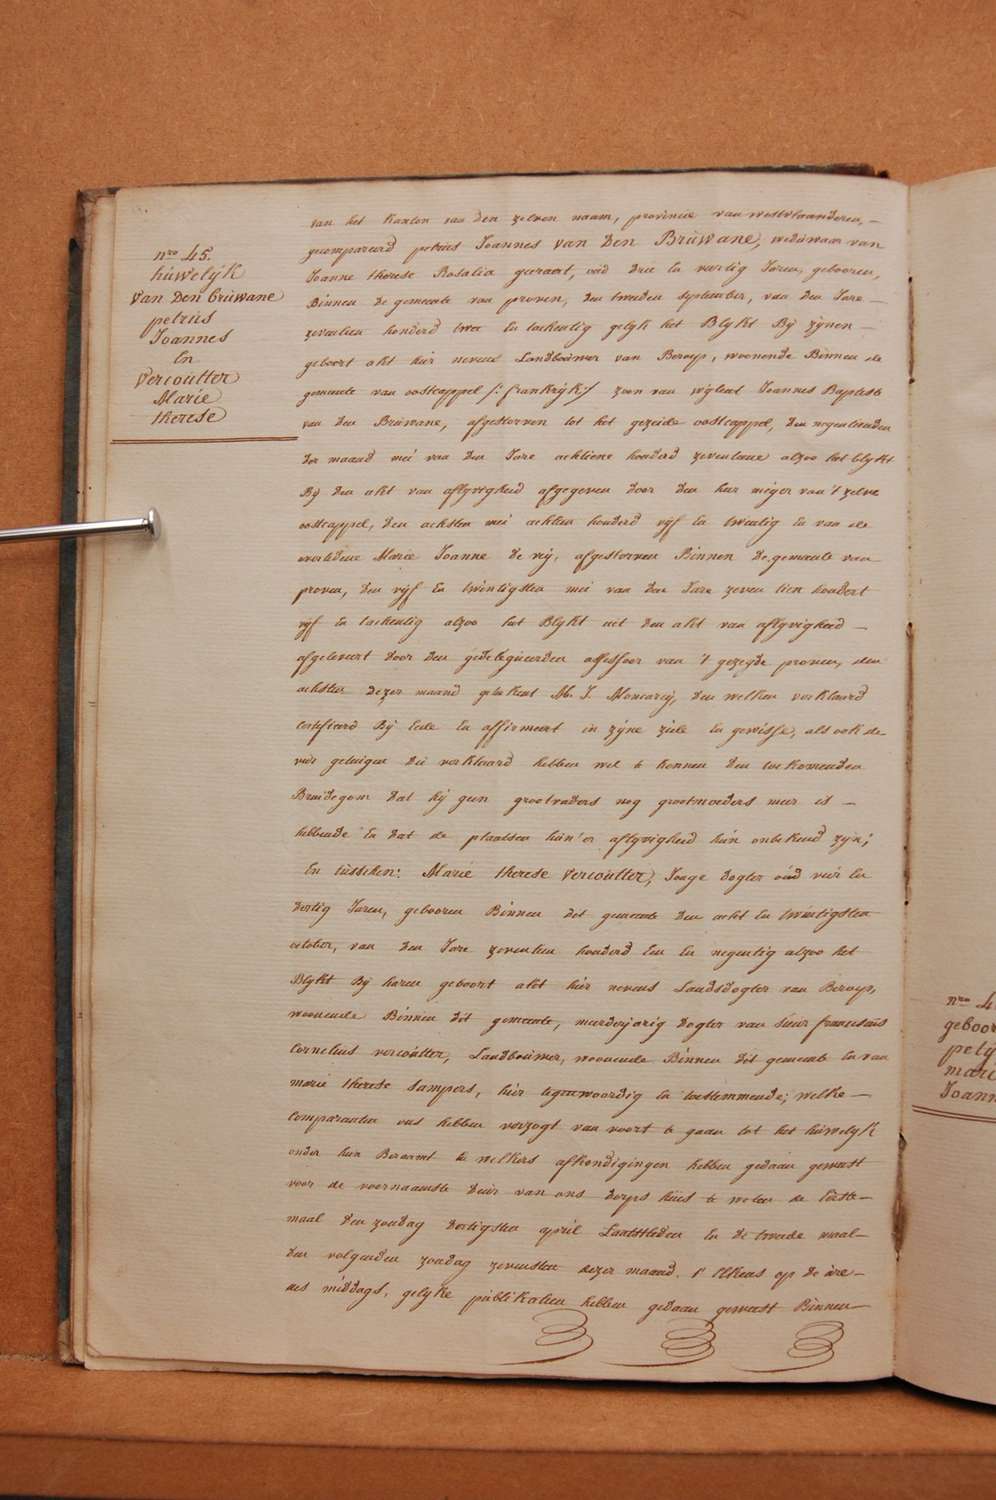 nro 45.
húwelÿk
van Den brúwane
petrús
Joannes
En
vercoútter
Marie
therese
van het kanton van den zelven naam, provincie van westvlaanderen, —
gecompareerd petrús Joannes van Den Brúwane, wedúwaar van
Joanne therese Rosalia geeraert, oúd drie En veertig Jaren, gebooren,
Binnen de gemeente van proven, den tweeden september, van den Jare —
zeventien honderd twee En tachentig gelyk het Blykt By zynen —
geboort akt hier nevens Landboúwer van Beroep, woonende Binnen de
gemeente van oostcappel /: frankryk :/ zoon van wylent Joannes Baptiste
van den Brúwane, afgestorven tot het gezeide oostcappel, den negentienden
der maand mei van den Jare achtiene honderd zeventiene alzoo het blykt
By den akt van aflyvigheid afgegeven door den heer méyer van 't zelve
oostcappel, den achsten mei achtien honderd vyf En twintig En van de
overledene Marie Joanne de rÿ, afgestorven Binnen de gemeente van
proven, den vyf En twintigsten mei van den Jare zeven tien hondert
vyf En tachentig alzoo het Blykt uit den akt van aflyvigheid —
afgelevert door den gedelegúeerden assessoor van 't gezeyde proven, den
achsten dezer maand getekent M. J. Moncareÿ, den welken verklaard
certificeerd By Eede En affirmeert in zÿne ziele En gewisse, als ook de
vier getuigen die verklaard hebben wel te kennen den toekomenden
Bruidegom dat hÿ geen grootvaders nog grootmoeders meer is —
hebbende En dat de plaatsen hún'er aflyvigheid hún onbekend zÿn;
En tússchen: Marie therese vercoútter, Jonge dogter oúd vier En
dertig Jaren, gebooren Binnen dét gemeente den acht En twintigsten
october, van den Jare zeventien honderd Een En negentig alzoo het
Blykt By haren geboort akt hier nevens Landsdogter van Beroep,
woonende Binnen dit gemeente, meerderjarig dogter van sieúr franciscús
Cornelius vercoútter, Landboúwer, woonende Binnen dit gemeente En van
marie therese Sampers, hier tegenwoordig En toestemmende; welke —
comparanten ons hebben verzogt van voort te gaan tot het húwelyk
onder hún Beraamt En welkers afkondigingen hebben gedaan geweest
voor de voornaamste deúr van ons dorps húis te weten de Eerste —
maal den zondag dertigsten april Laatstleden En de tweede maal —
den volgenden zondag zevensten dezer maand, t'Elkens op de úre —
des middags, gelyke públikatien hebben gedaan geweest Binnen —
nro 4
geboor
petÿ
marc
Joann